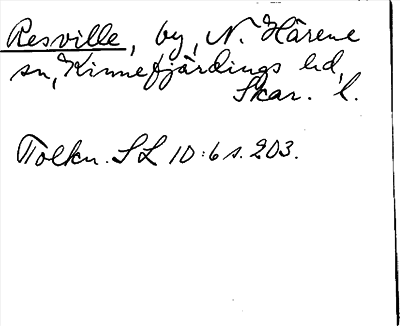 Resville, by, N. Härene
sn, Kinnefjärdings hd,
Skar. l.
Tolkn. SL 10:6 s. 203.